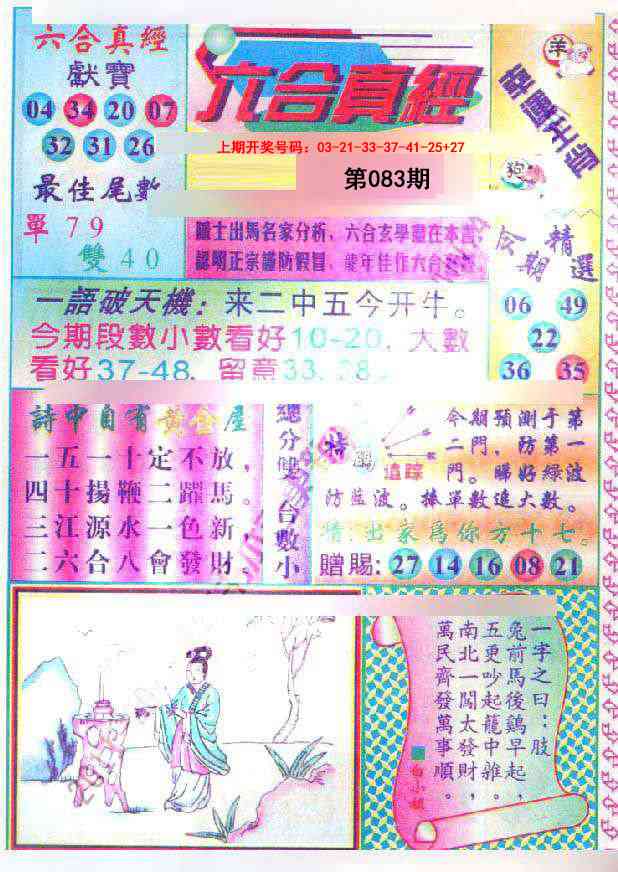 六合真經
獻寶
04 34 20 07
32 31 26
最佳尾數
單79
雙40
六合真經
上期开奖号码：03-21-33-37-41-25+27
第083期
羊
狗
六合玄學盡在本書，
認明正宗謹防假冒，
今期
精選
06 49
22
36 35
一語破天機：来二中五今开牛。
今期段數小數看好10-20，大數
看好37-48，留意33,38
詩中自有黃金屋
一五一十定不放，
四十揚鞭二躍馬。
三江源水一色新，
二六合八會發財。
總分雙
台數小
特
追踪
今期預測于第
二門，防第一
門。睇好綠波
防藍波。捧單數追大數。
情：出家為你方十七。
贈賜：27 14 16 08 21
一字之曰：肢
兔前馬後鷄早起，
五更吵起龍中雅。
南北一闖太發財，
萬民齊發萬事順。
白小姐